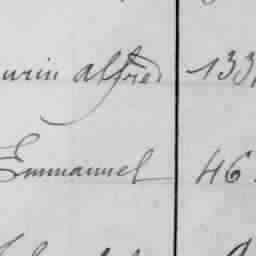 urin alfred 133
Emmanuel 46